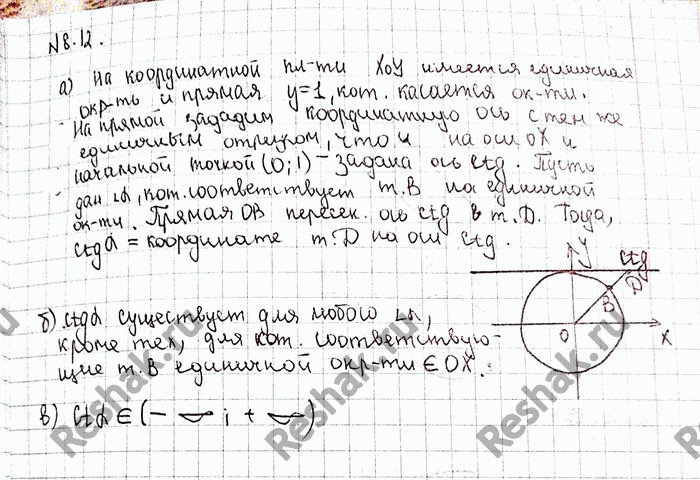 N8.12.
а) На координатной пл-ти XOY имеется единичная
окр-ть и прямая y=1, кот. касается ок-ти.
На прямой зададим координатную ось с тем же
единичным отрезком, что и на оси OX и
начальной точкой (0;1) - задана ось ctg. Пусть
дан ∠α, кот. соответствует т.B на единичной
ок-ти. Прямая OB пересек. ось ctg в т.D. Тогда,
ctgα = координате т.D на оси ctg.
y ctg
D
B
O X
б) ctgα существует для любого ∠α,
кроме тех, для кот. соответствую-
щие т.B единичной окр-ти ∈ OX.
в) ctα ∈ (- ∞ ; + ∞)
Reshak.ru
Reshak.ru
Reshak.ru